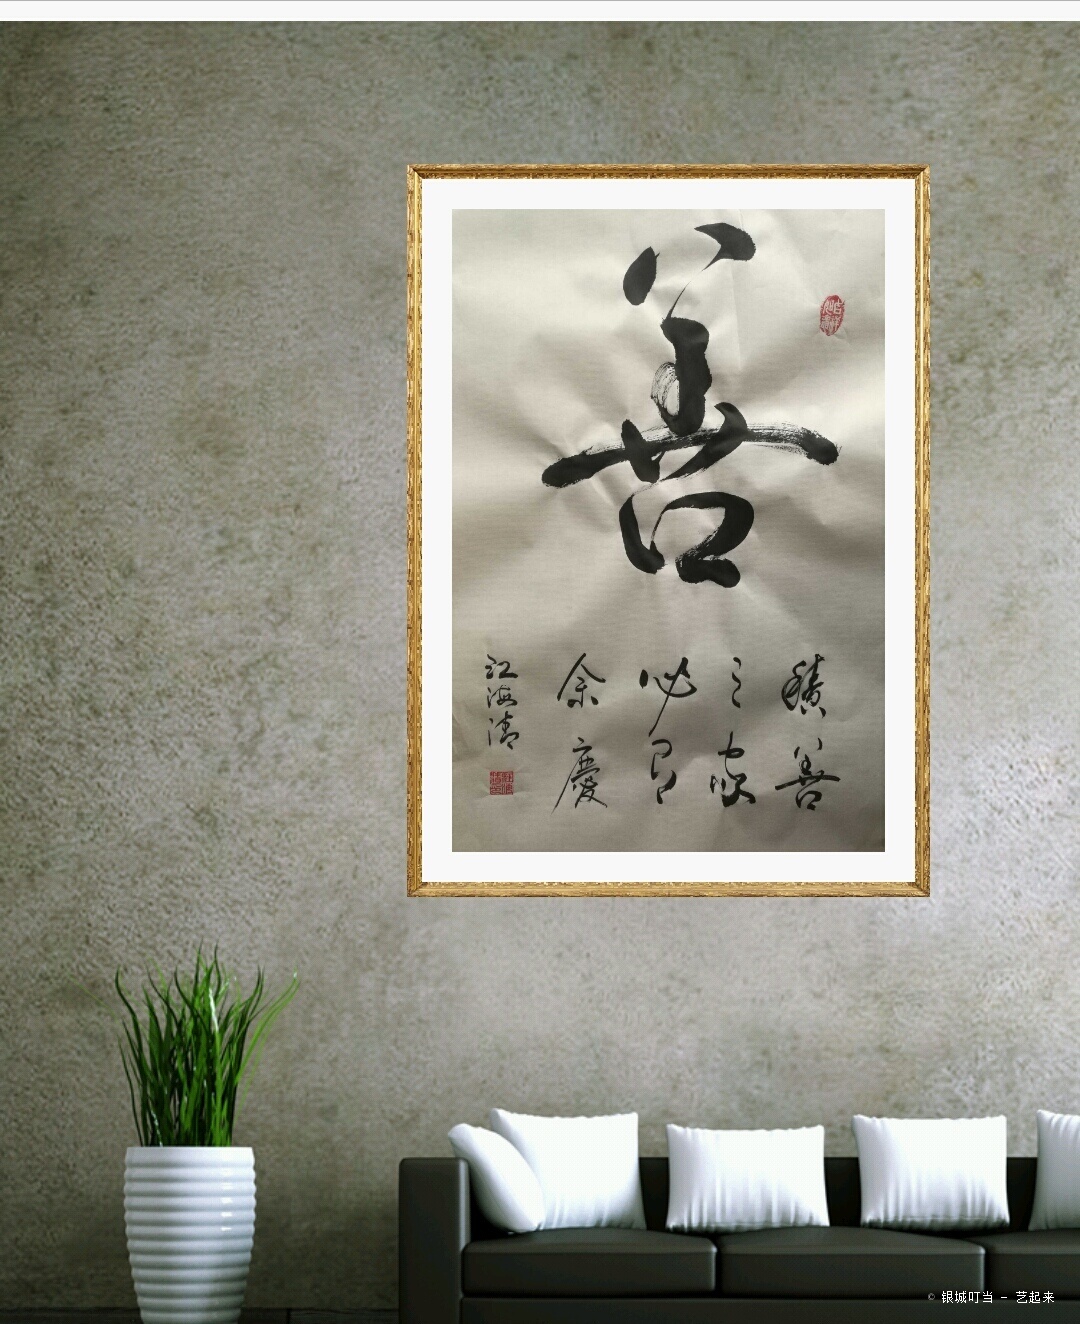 善
積善
之家
必有
余慶
江海清
© 银城叮当 - 艺起来